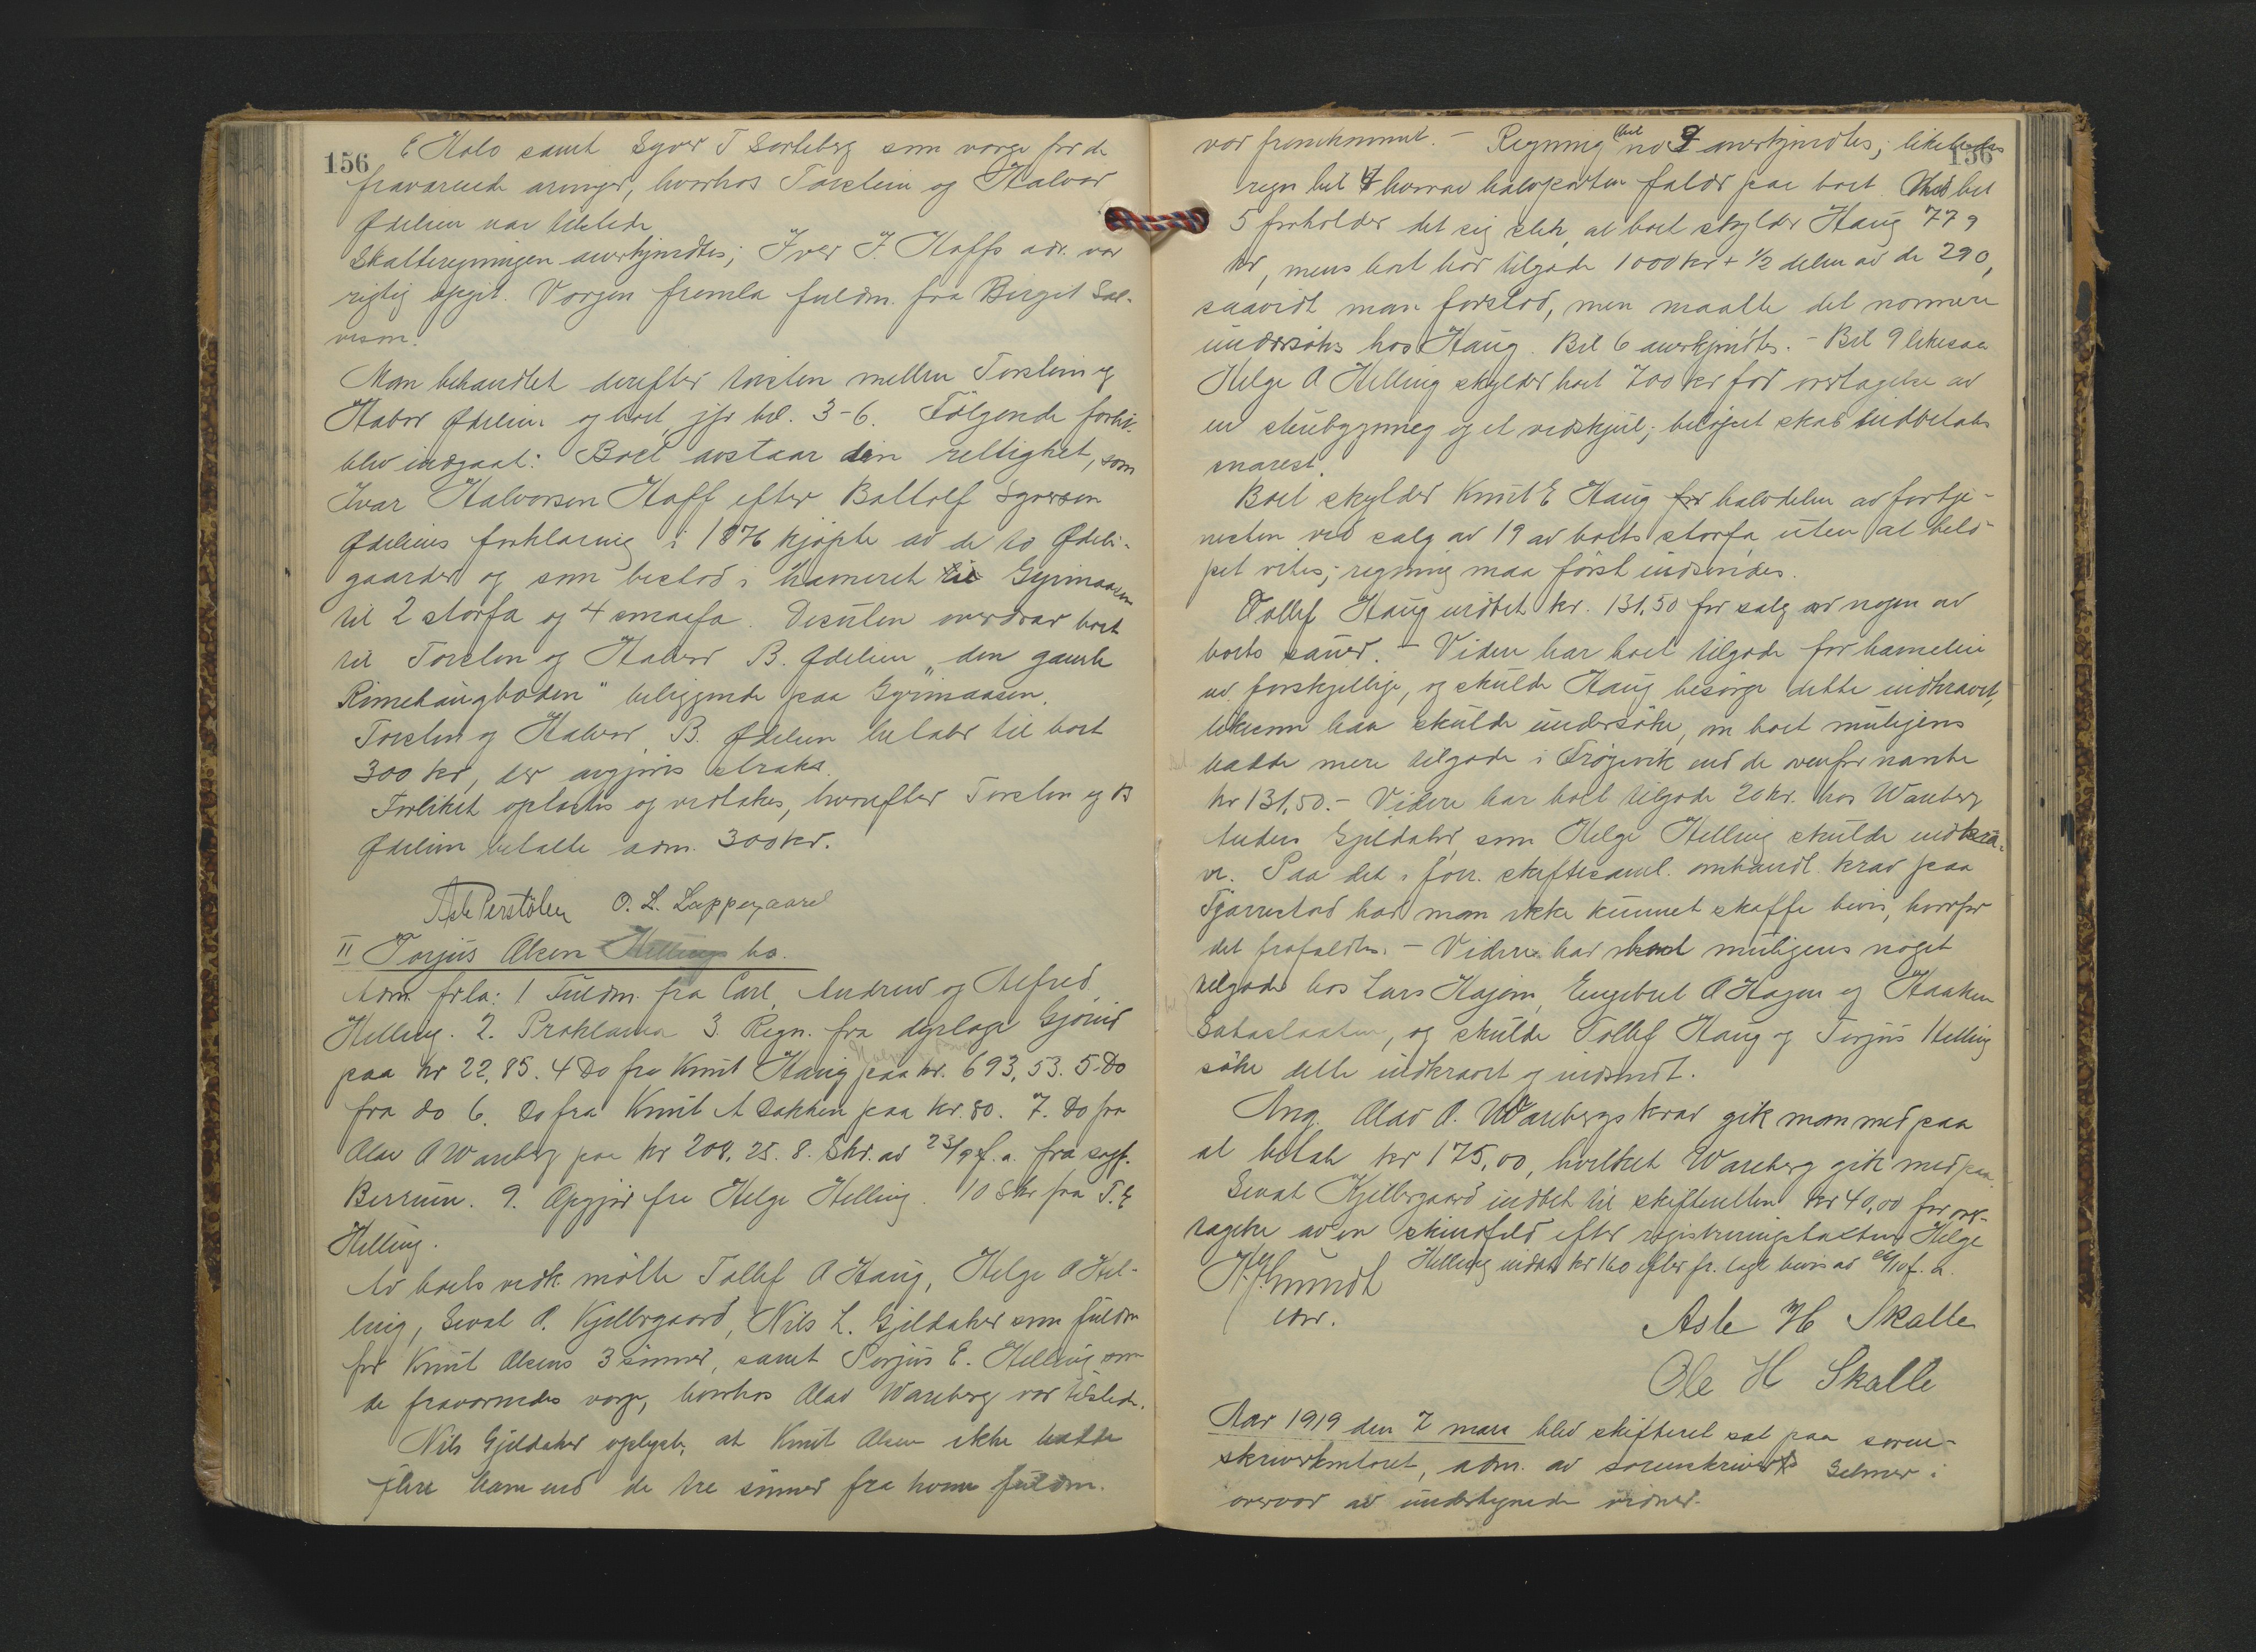 156
E Halo samt Syver T Sorteberg som verge for de
fraværende arvinger, hvorhos Torstein og Halvor
Ødelien var tilstede
Skatteregningen anerkjendtes; Iver I. Hoffs adr. var
rigtig opgit. Vergen fremla fuldm. fra Birgit Sal-
veson.
Man behandlet derefter tvisten mellem Torstein og
Halvor Ødelien og boet jfr bil. 3-6. Følgende forlik
blev indgaat: Boet avstaar den rettighet, som
Ivar Halvorsen Hoff efter Bottolf Syversen
Ødeliens forklaring i 1876 kjøpte av de to Ødeli-
gaarder og som bestod i havneret til Gyrimaasen
til 2 storfæ og 4 smaafæ. Desuten overdrar boet
til Torsten og Halvor B. Ødelien "den gamle
Rimehaugboden" beliggende paa Gyrimaasen.
Torsten og Halvor B. Ødelien betaler til boet
300 kr, der avgjøres straks.
Forliket oplæstes og vedtokes, hvorefter Torsten og B
Ødelien betalte adm. 300 kr.
Asle Perstølen O. L. Luppegaard
II Torjus Olsen Hellings bo.
Adm. frla: 1 Fuldm. fra Carl, Andrew og Alfred
Helling. 2. Proklama 3. Regn. fra dyrlæge Gjøvind
paa kr 22,85. 4 Do fra Knut Haug paa kr. 693,53. 5. Do
fra do 6. Do fra Knut A Bakken paa kr. 80. 7. Do fra
Olav O Wareberg paa kr 208,25. 8. Skr. av 23/9 f. a. fra sagf.
Berrum. 9. Opgjør fra Helge Helling. 10 Skr fra T. E
Helling.
Av boets vedk. møtte Tollef O Haug, Helge O Hel-
ling, Sevat O. Kjellergaard, Nils L. Gjeldaker som fuldm
for Knut Olsens 3 sønner, samt Torjus E. Helling som
de fraværendes verge, hvorhos Olav Wareberg var tilstede.
Nils Gjeldaker oplyste, at Knut Olsen ikke hadde
flere barn end de tre sønner fra hvem fuldm.
156
var fremkommet. - Regning bil no 3 anerkjendtes; likeledes
regn bil 4 hvorav halvparten falder paa boet. Med bil
5 forholder det sig slik, at boet skylder Haug 779
kr, mens boet har tilgode 1000 kr + 1/2 delen av de 290,
saavidt man forstod, men maatte det nærmere
undersøkes hos Haug. Bil 6 anerkjendtes. - Bil 9 likesaa
Helge O Helling skylder boet 700 kr for overtagelse av
en stubygning og et vedskjul; beløpet skal indbetales
snarest.
Boet skylder Knut E Haug for halvdelen av fortje-
nesten ved salg av 19 av boets storfæ, uten at belø-
pet vites; regning maa først indsendes.
Tollef Haug indbet kr. 131,50 for salg av nogen av
boets sauer. - Videre har boet tilgode for havneleie
av forskjellige, og skulde Haug besørge dette indkrævet,
likesom han skulde undersøke, om boet muligens
hadde mere tilgode i Trøgevik end de ovenfor nævnte
kr 131,50. - Videre har boet tilgode 20 kr. hos Wareberg
Anders Gjeldaker, som Helge Helling skulde indkræ-
ve. Paa det i forr. skiftesaml. omhandl. krav paa
Tjørrestad har man ikke kunnet skaffe bevis, hvorfor
det frafaldtes. - Videre har boet muligens noget
tilgode hos Lars Hajem, Engebret O Hagen og Haaken
Sataslaatten, og skulde Tollef Haug og Torjus Helling
søke dette indkrævet og indsendt.
Ang. Olav O. Warebergs krav gik man med paa
at betale kr 175,00, hvilket Wareberg gik med paa.
Sevat Kjellergaard indbet til skifteretten kr 40,00 for over-
tagelse av en skindfeld efter registreringstaksten. Helge
Helling indbet kr 160 efter fr. lagt bevis av /10 f. a.
H. Grundt
cons.
Asle H Skalle
Ole H Skalle
Aar 1919 den 7 mars blev skifteret sat paa soren-
skriverkontoret, adm. av sorenskriver Selmer i
overvær av undertegnede vidner.